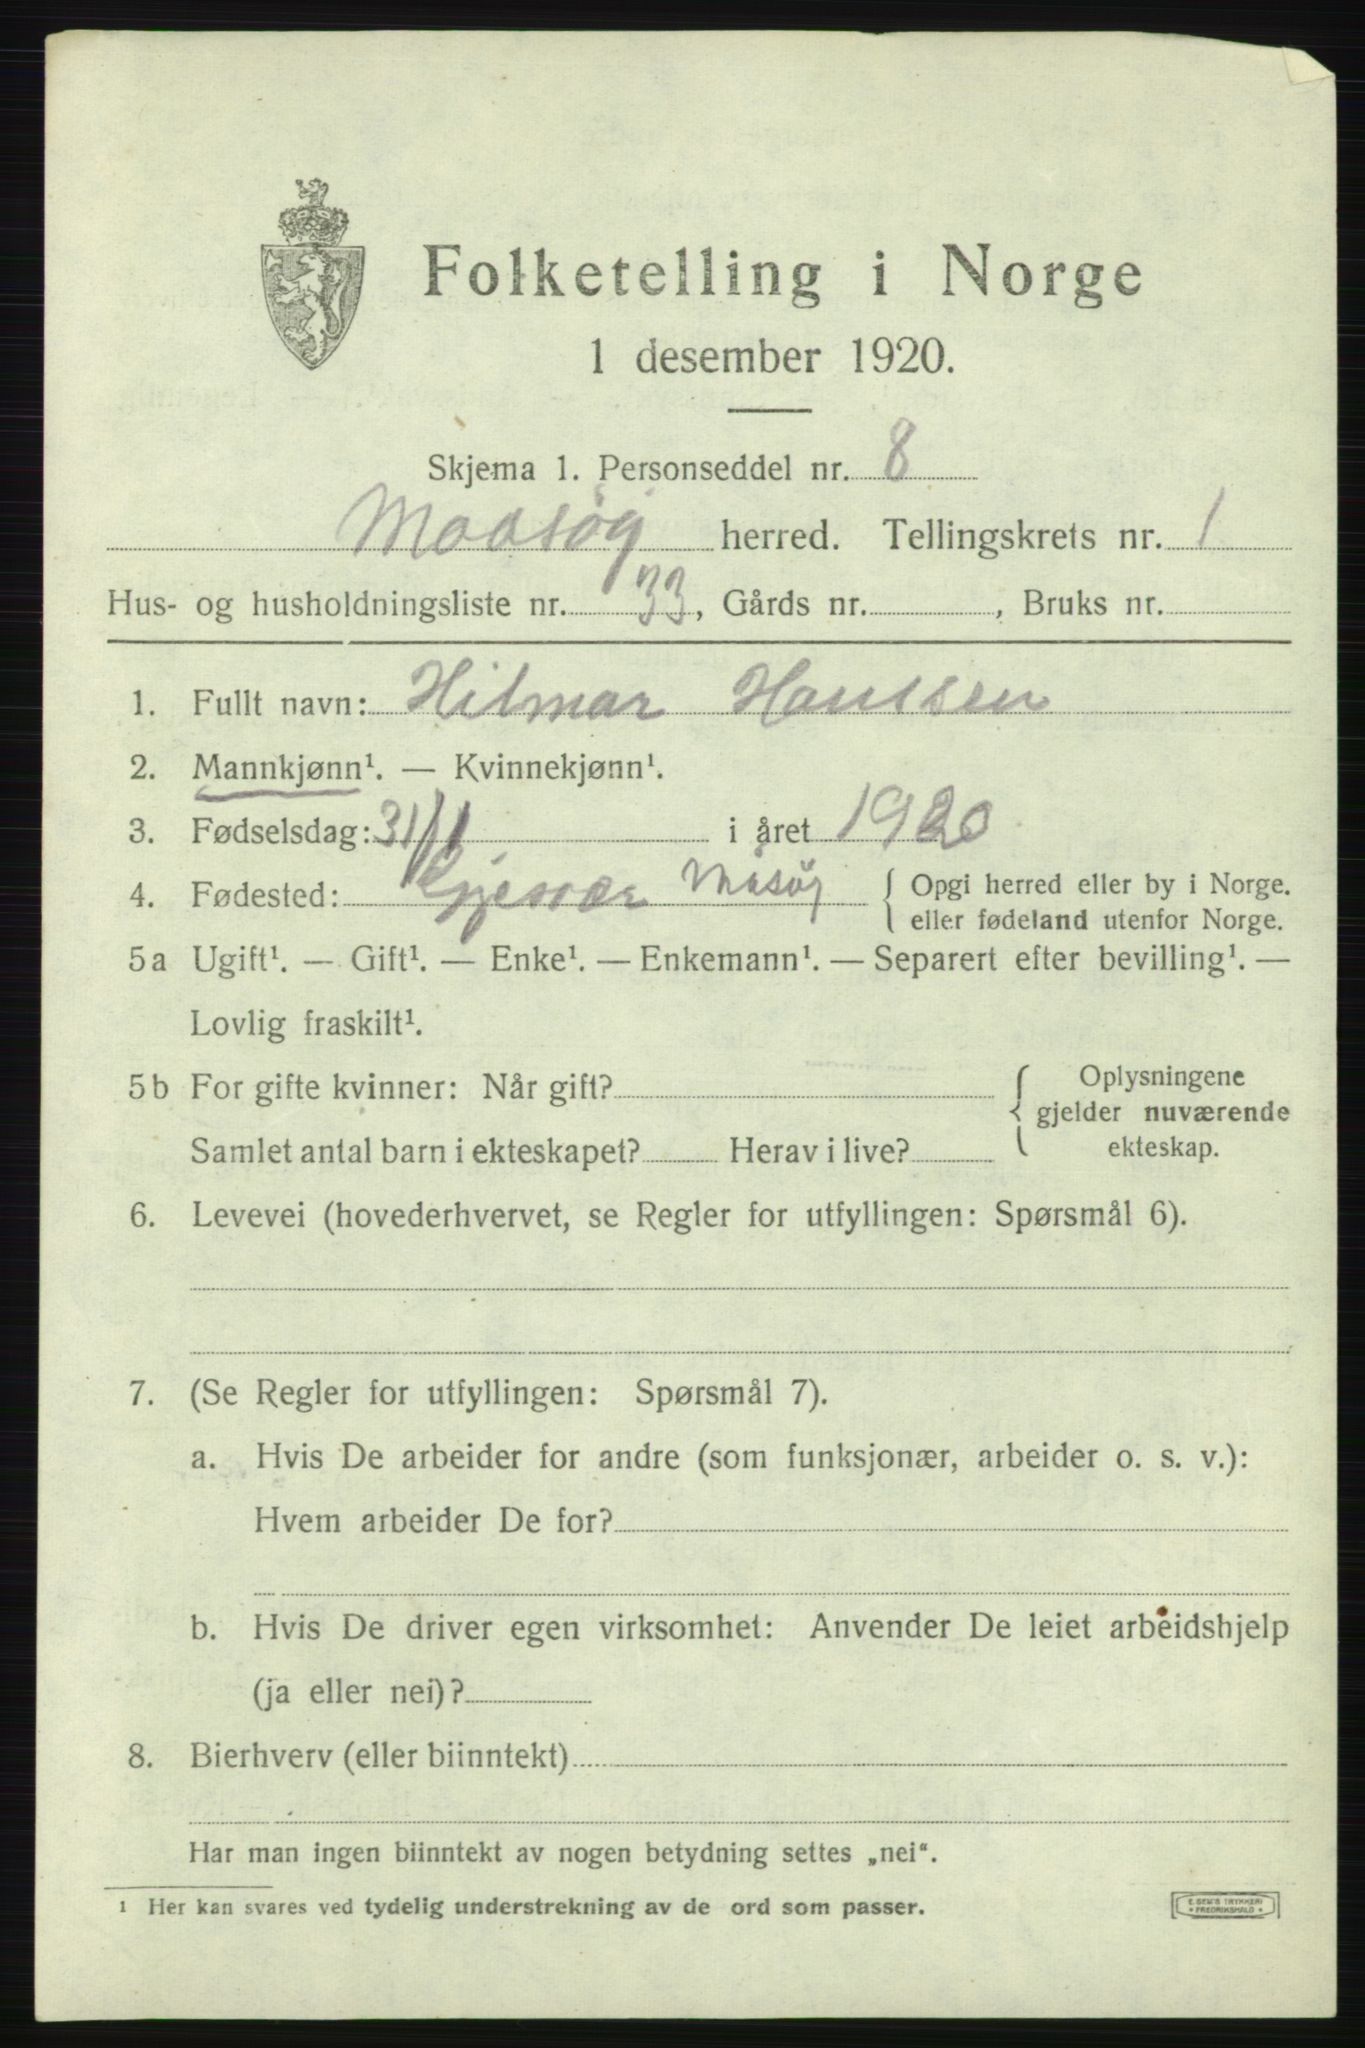 Folketelling i Norge
1 desember 1920.
Skjema 1. Personseddel nr. 8
Maasøy herred. Tellingskrets nr. 1
Hus- og husholdningsliste nr. 33, Gårds nr. , Bruks nr.
1. Fullt navn: Hilmar Hanssen
2. Mannkjønn¹. — Kvinnekjønn¹.
3. Fødselsdag: 31/1 i året 1920
4. Fødested: Gjesvær Måsøy { Opgi herred eller by i Norge.
eller fødeland utenfor Norge.
5a Ugift¹. — Gift¹. — Enke¹. — Enkemann¹. — Separert efter bevilling¹. —
Lovlig fraskilt¹.
5b For gifte kvinner: Når gift? { Oplysningene
gjelder nuværende
Samlet antal barn i ekteskapet? Herav i live? ekteskap.
6. Levevei (hovederhvervet, se Regler for utfyllingen: Spørsmål 6).
7. (Se Regler for utfyllingen: Spørsmål 7).
a. Hvis De arbeider for andre (som funksjonær, arbeider o. s. v.):
Hvem arbeider De for?
b. Hvis De driver egen virksomhet: Anvender De leiet arbeidshjelp
(ja eller nei)?
8. Bierhverv (eller biinntekt)
Har man ingen biinntekt av nogen betydning settes „nei“.
1 Her kan svares ved tydelig understrekning av de ord som passer.
E. SEM'S TRYKKERI
• FREDRIKSHALD •